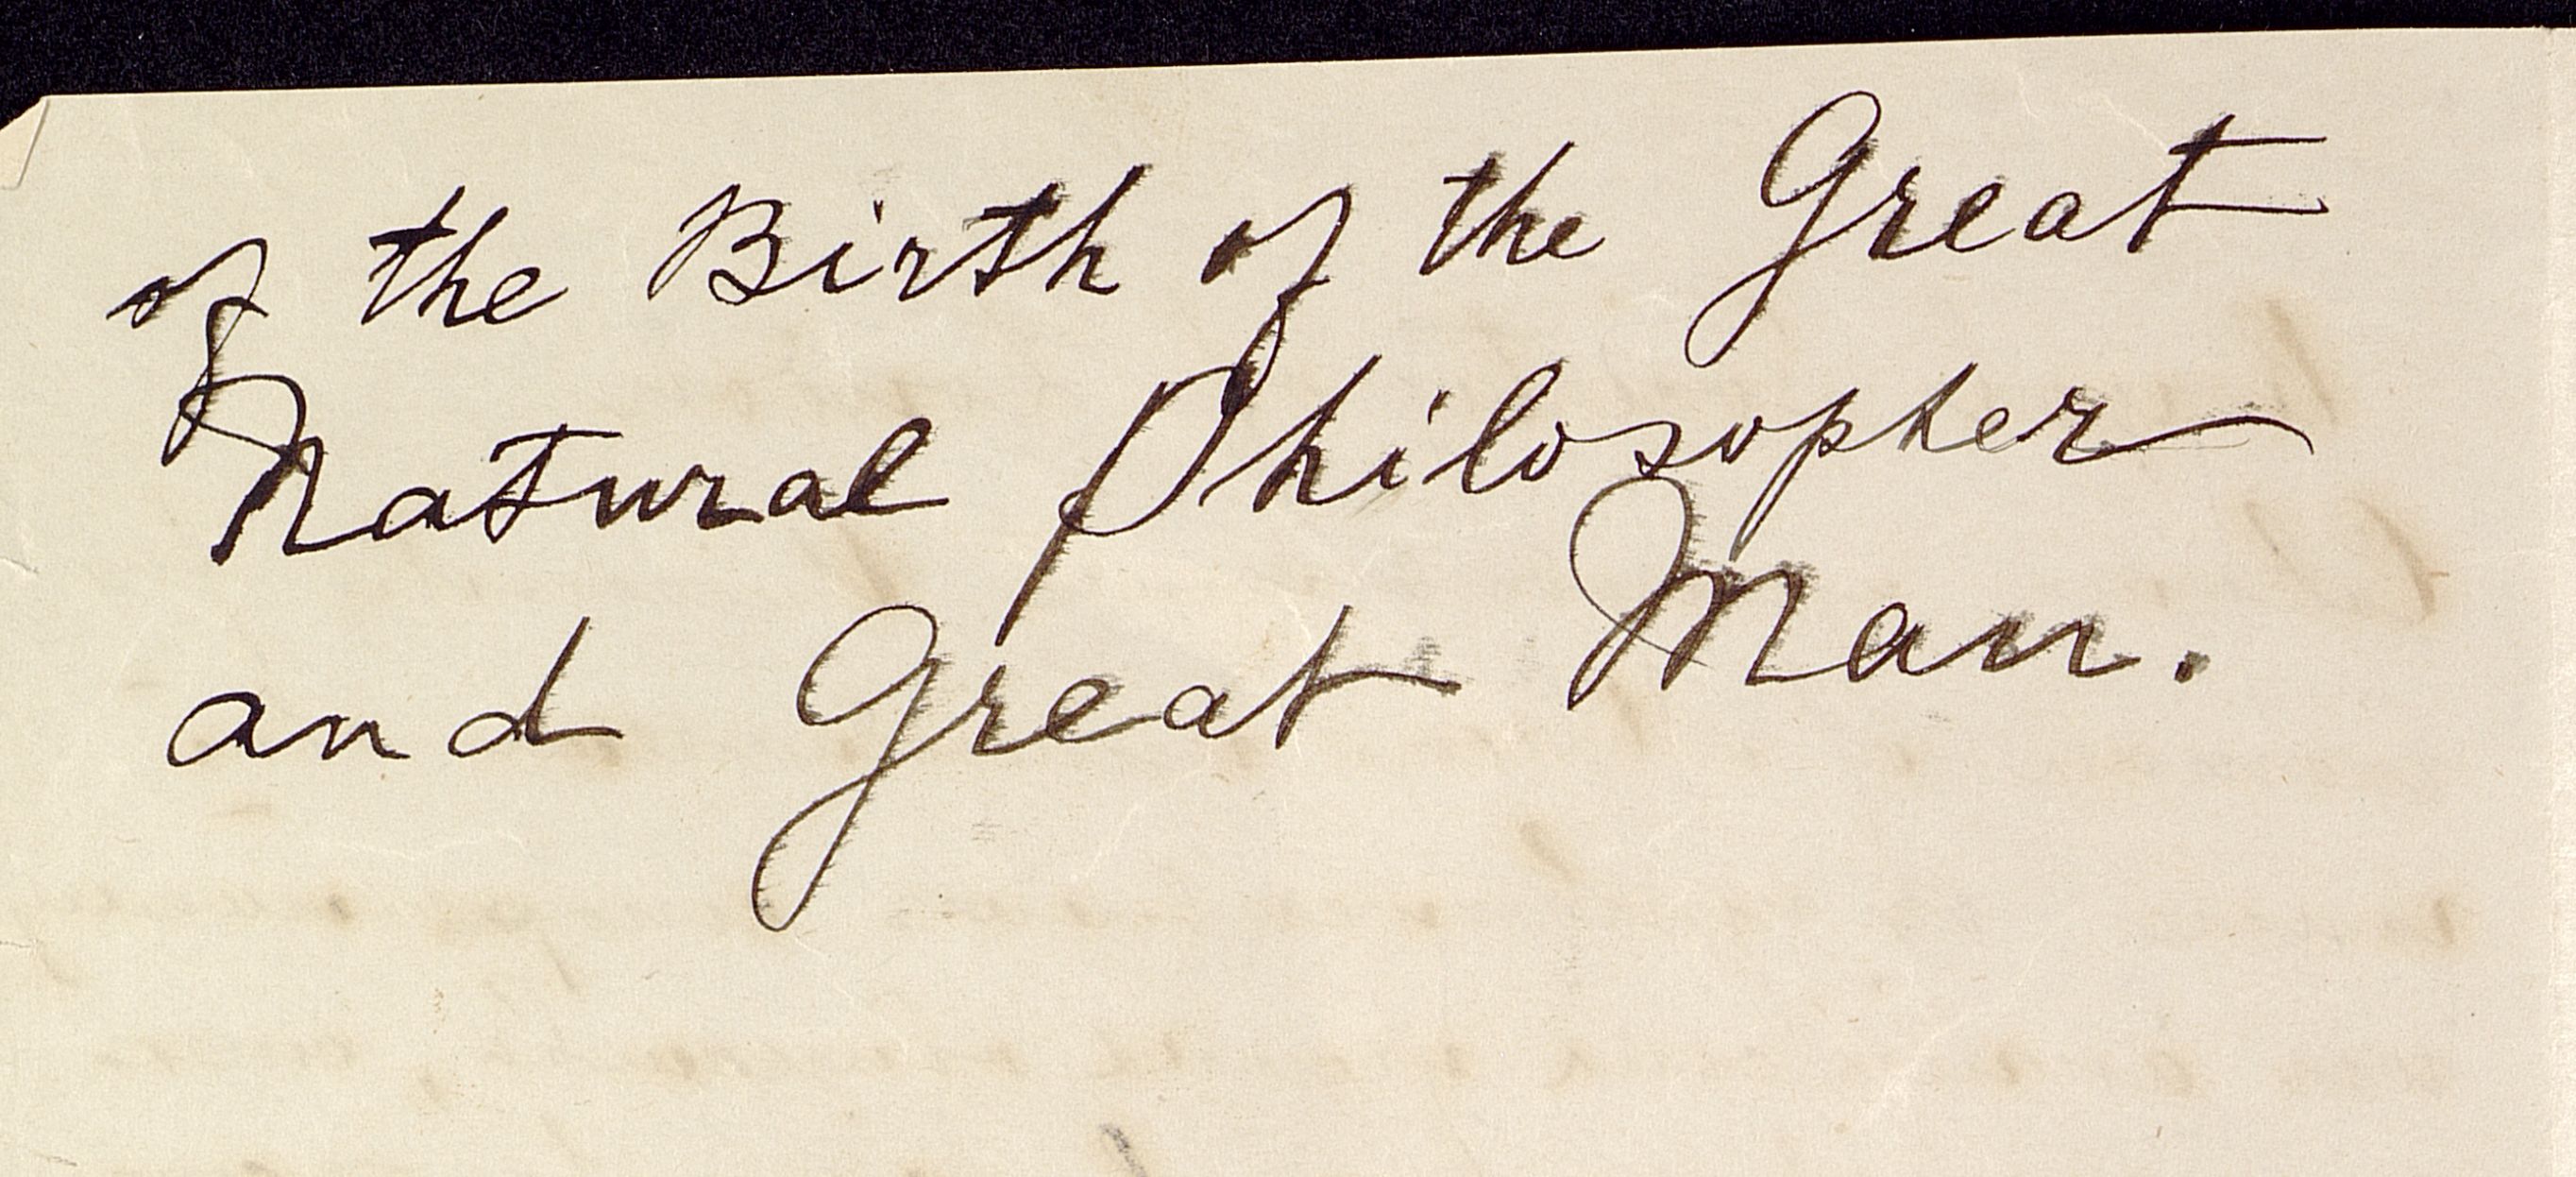 of the Birth of the Great
Natural Philosopher
and Great Man.